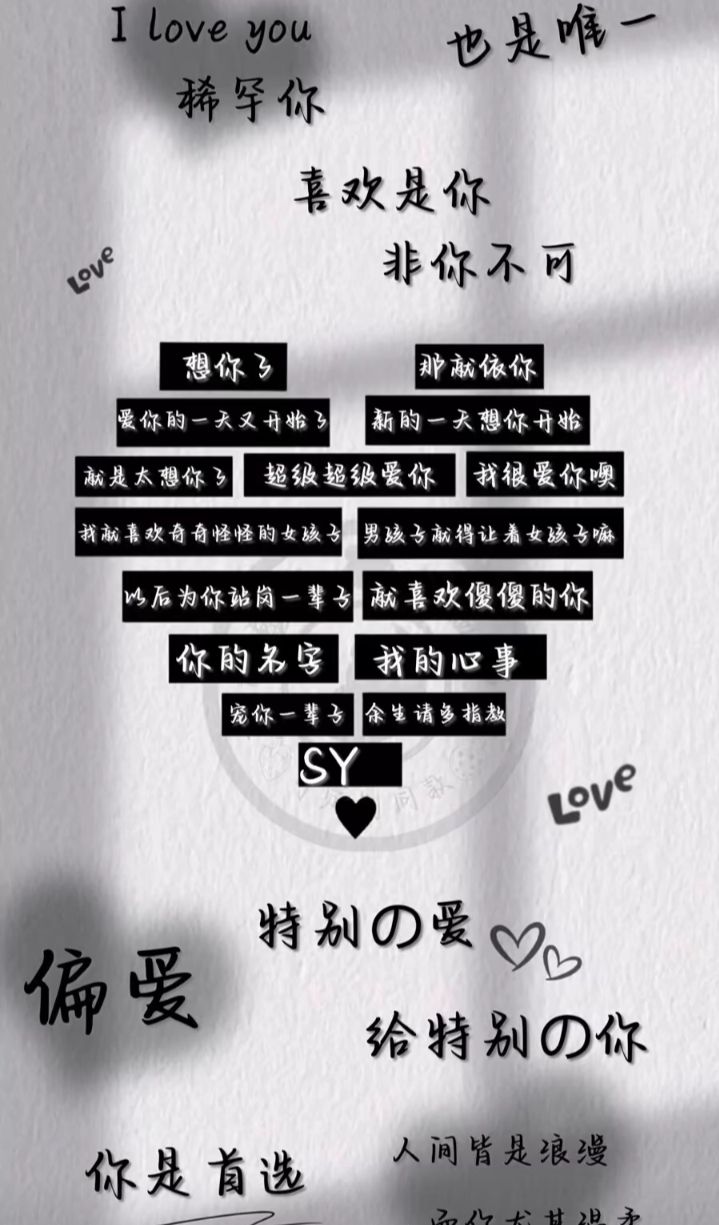 I love you
也是唯一
稀罕你
喜欢是你
非你不可
Love
想你了
那就依你
爱你的一天又开始了
新的一天想你开始
就是太想你了
超级超级爱你
我很爱你噢
我就喜欢奇奇怪怪的女孩子
男孩子就得让着女孩子嘛
以后为你站岗一辈子
就喜欢傻傻的你
你的名字
我的心事
宠你一辈子
余生请多指教
SY
Love
特别の爱
偏爱
给特别の你
你是首选
人间皆是浪漫